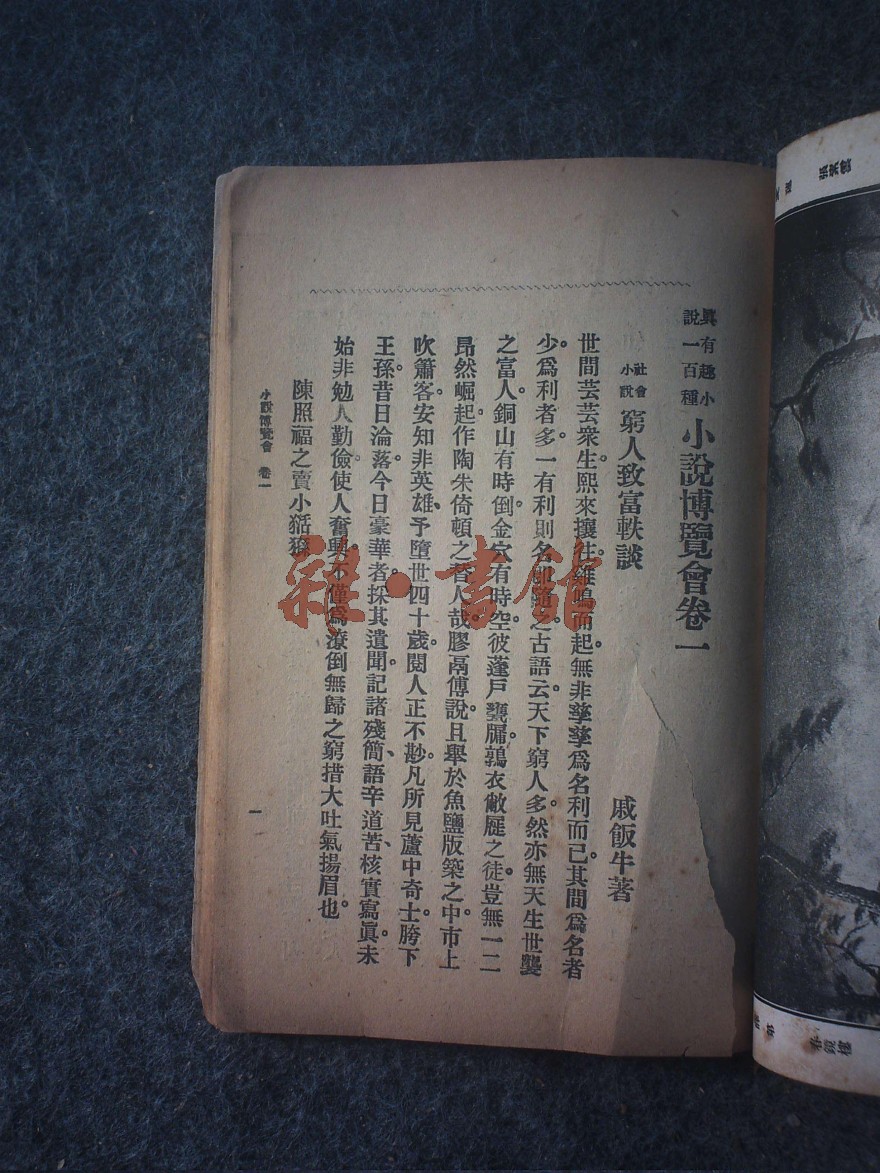 異有趣小
說一百種
小說博覽會卷一
社會
小說
窮人致富軼談
戚飯牛著
世間芸芸衆生熙來攘往雞鳴而起無非孳孳爲名利而已。其間爲名者
少。爲利者多。一有利則名卽隨之古語云天下窮人多。然亦無天生世襲
之富人。銅山有時倒。金穴有時空。彼蓬戶甕牖。鶉衣敝屣之徒。豈無一二
昂然崛起。作陶朱倚頓之者人哉。膠鬲傅說。且舉於魚鹽版築之中。市上
吹簫客。安知非英雄、予墮世四十歲。閱人正不尠。凡所見蘆中奇士。胯下
王孫。昔日淪落。今日豪華者。採其遺聞。記諸殘簡、語辛道苦、核實寫眞。未
始非勉人勤儉。使人奮興。不僅爲潦倒無歸之窮措大吐氣揚眉也。
陳照福之賣小猢猻
小說博覽會 卷一
一
雜·書館